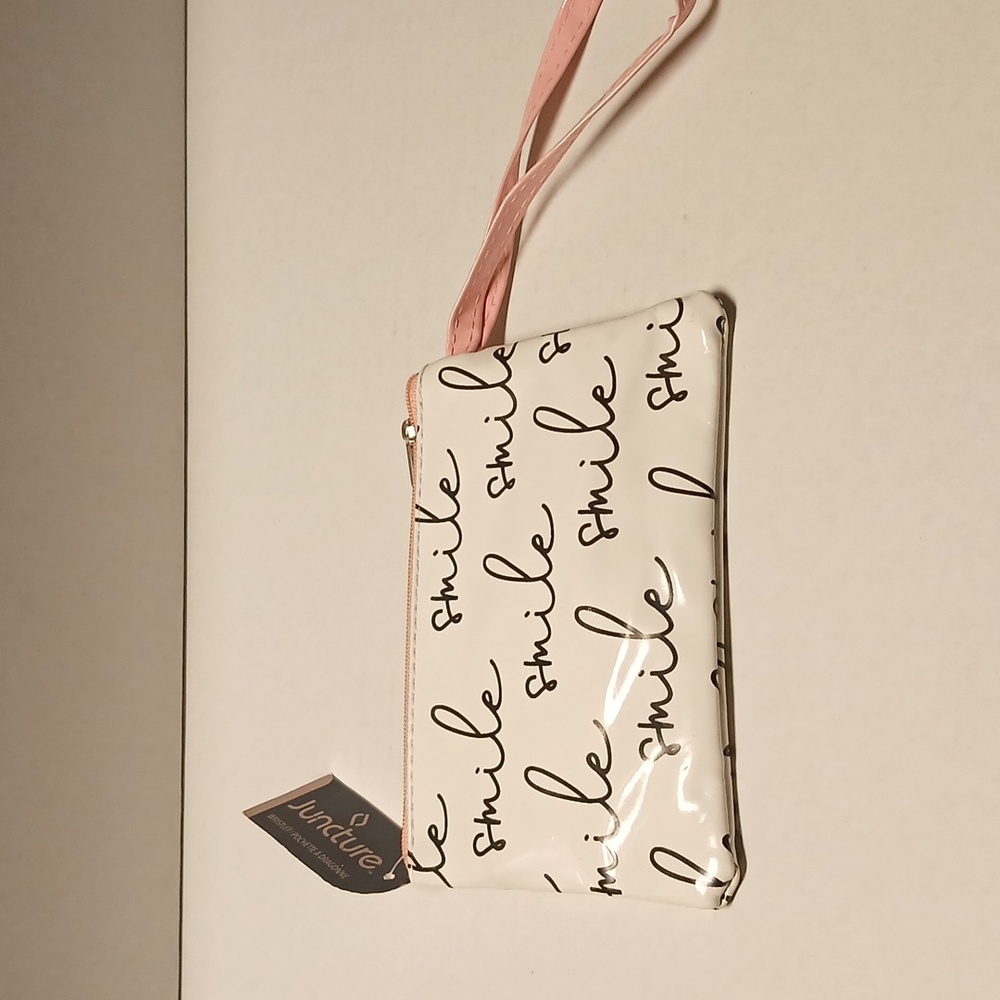 smile
smile
smile
smile
smile
smile
smile
smi
le
mile
s
Juncture™
WRISTLET / POCHETTE À DRAGONNE